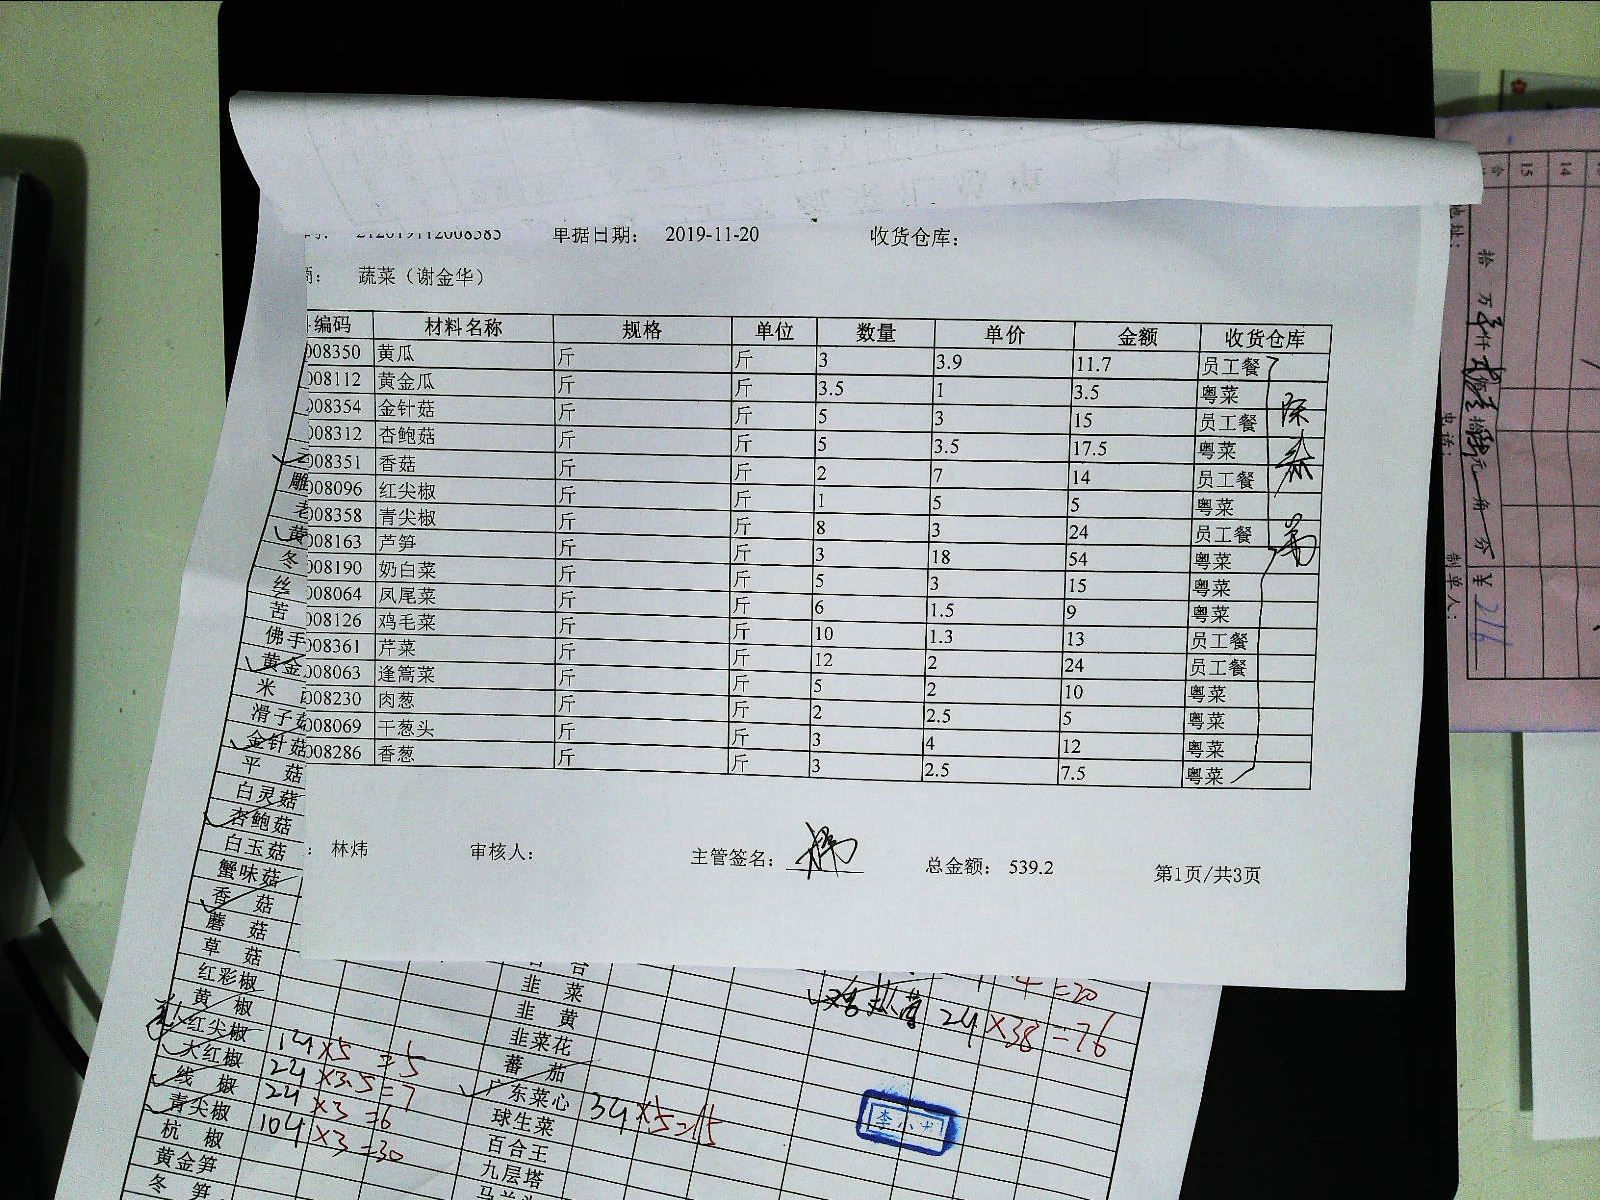 212019112008585 单据日期： 2019-11-20 收货仓库：
商： 蔬菜（谢金华）
编码 材料名称 规格 单位 数量 单价 金额 收货仓库
008350 黄瓜 斤 斤 3 3.9 11.7 员工餐
008112 黄金瓜 斤 斤 3.5 1 3.5 粤菜
008354 金针菇 斤 斤 5 3 15 员工餐
008312 杏鲍菇 斤 斤 5 3.5 17.5 粤菜
008351 香菇 斤 斤 2 7 14 员工餐
008096 红尖椒 斤 斤 1 5 5 粤菜
008358 青尖椒 斤 斤 8 3 24 员工餐
008163 芦笋 斤 斤 3 18 54 粤菜
008190 奶白菜 斤 斤 5 3 15 粤菜
008064 凤尾菜 斤 斤 6 1.5 9 粤菜
008126 鸡毛菜 斤 斤 10 1.3 13 员工餐
008361 芹菜 斤 斤 12 2 24 员工餐
008063 逢篙菜 斤 斤 5 2 10 粤菜
008230 肉葱 斤 斤 2 2.5 5 粤菜
008069 干葱头 斤 斤 3 4 12 粤菜
008286 香葱 斤 斤 3 2.5 7.5 粤菜
： 林炜 审核人： 主管签名： 总金额： 539.2 第1页/共3页
雕
老
黄
冬
丝
苦
佛手
黄金
米
滑子菇
金针菇
平 菇
白灵菇
杏鲍菇
白玉菇
蟹味菇
香 菇
蘑 菇
草 菇
红彩椒
黄 椒
红尖椒 1斤×5=5
大红椒 2斤×3.5=7
线 椒 2斤×3=6
青尖椒 10斤×3=30
杭 椒
黄金笋
冬 笋
韭 菜
韭 黄
韭菜花
蕃 茄
广东菜心 3斤×5=15
球生菜
百合王
九层塔
马兰头
4=20
2斤×38=76
李小
拾 万 仟 佰 拾 元 角 分 ¥ 216
制单人：
14
15